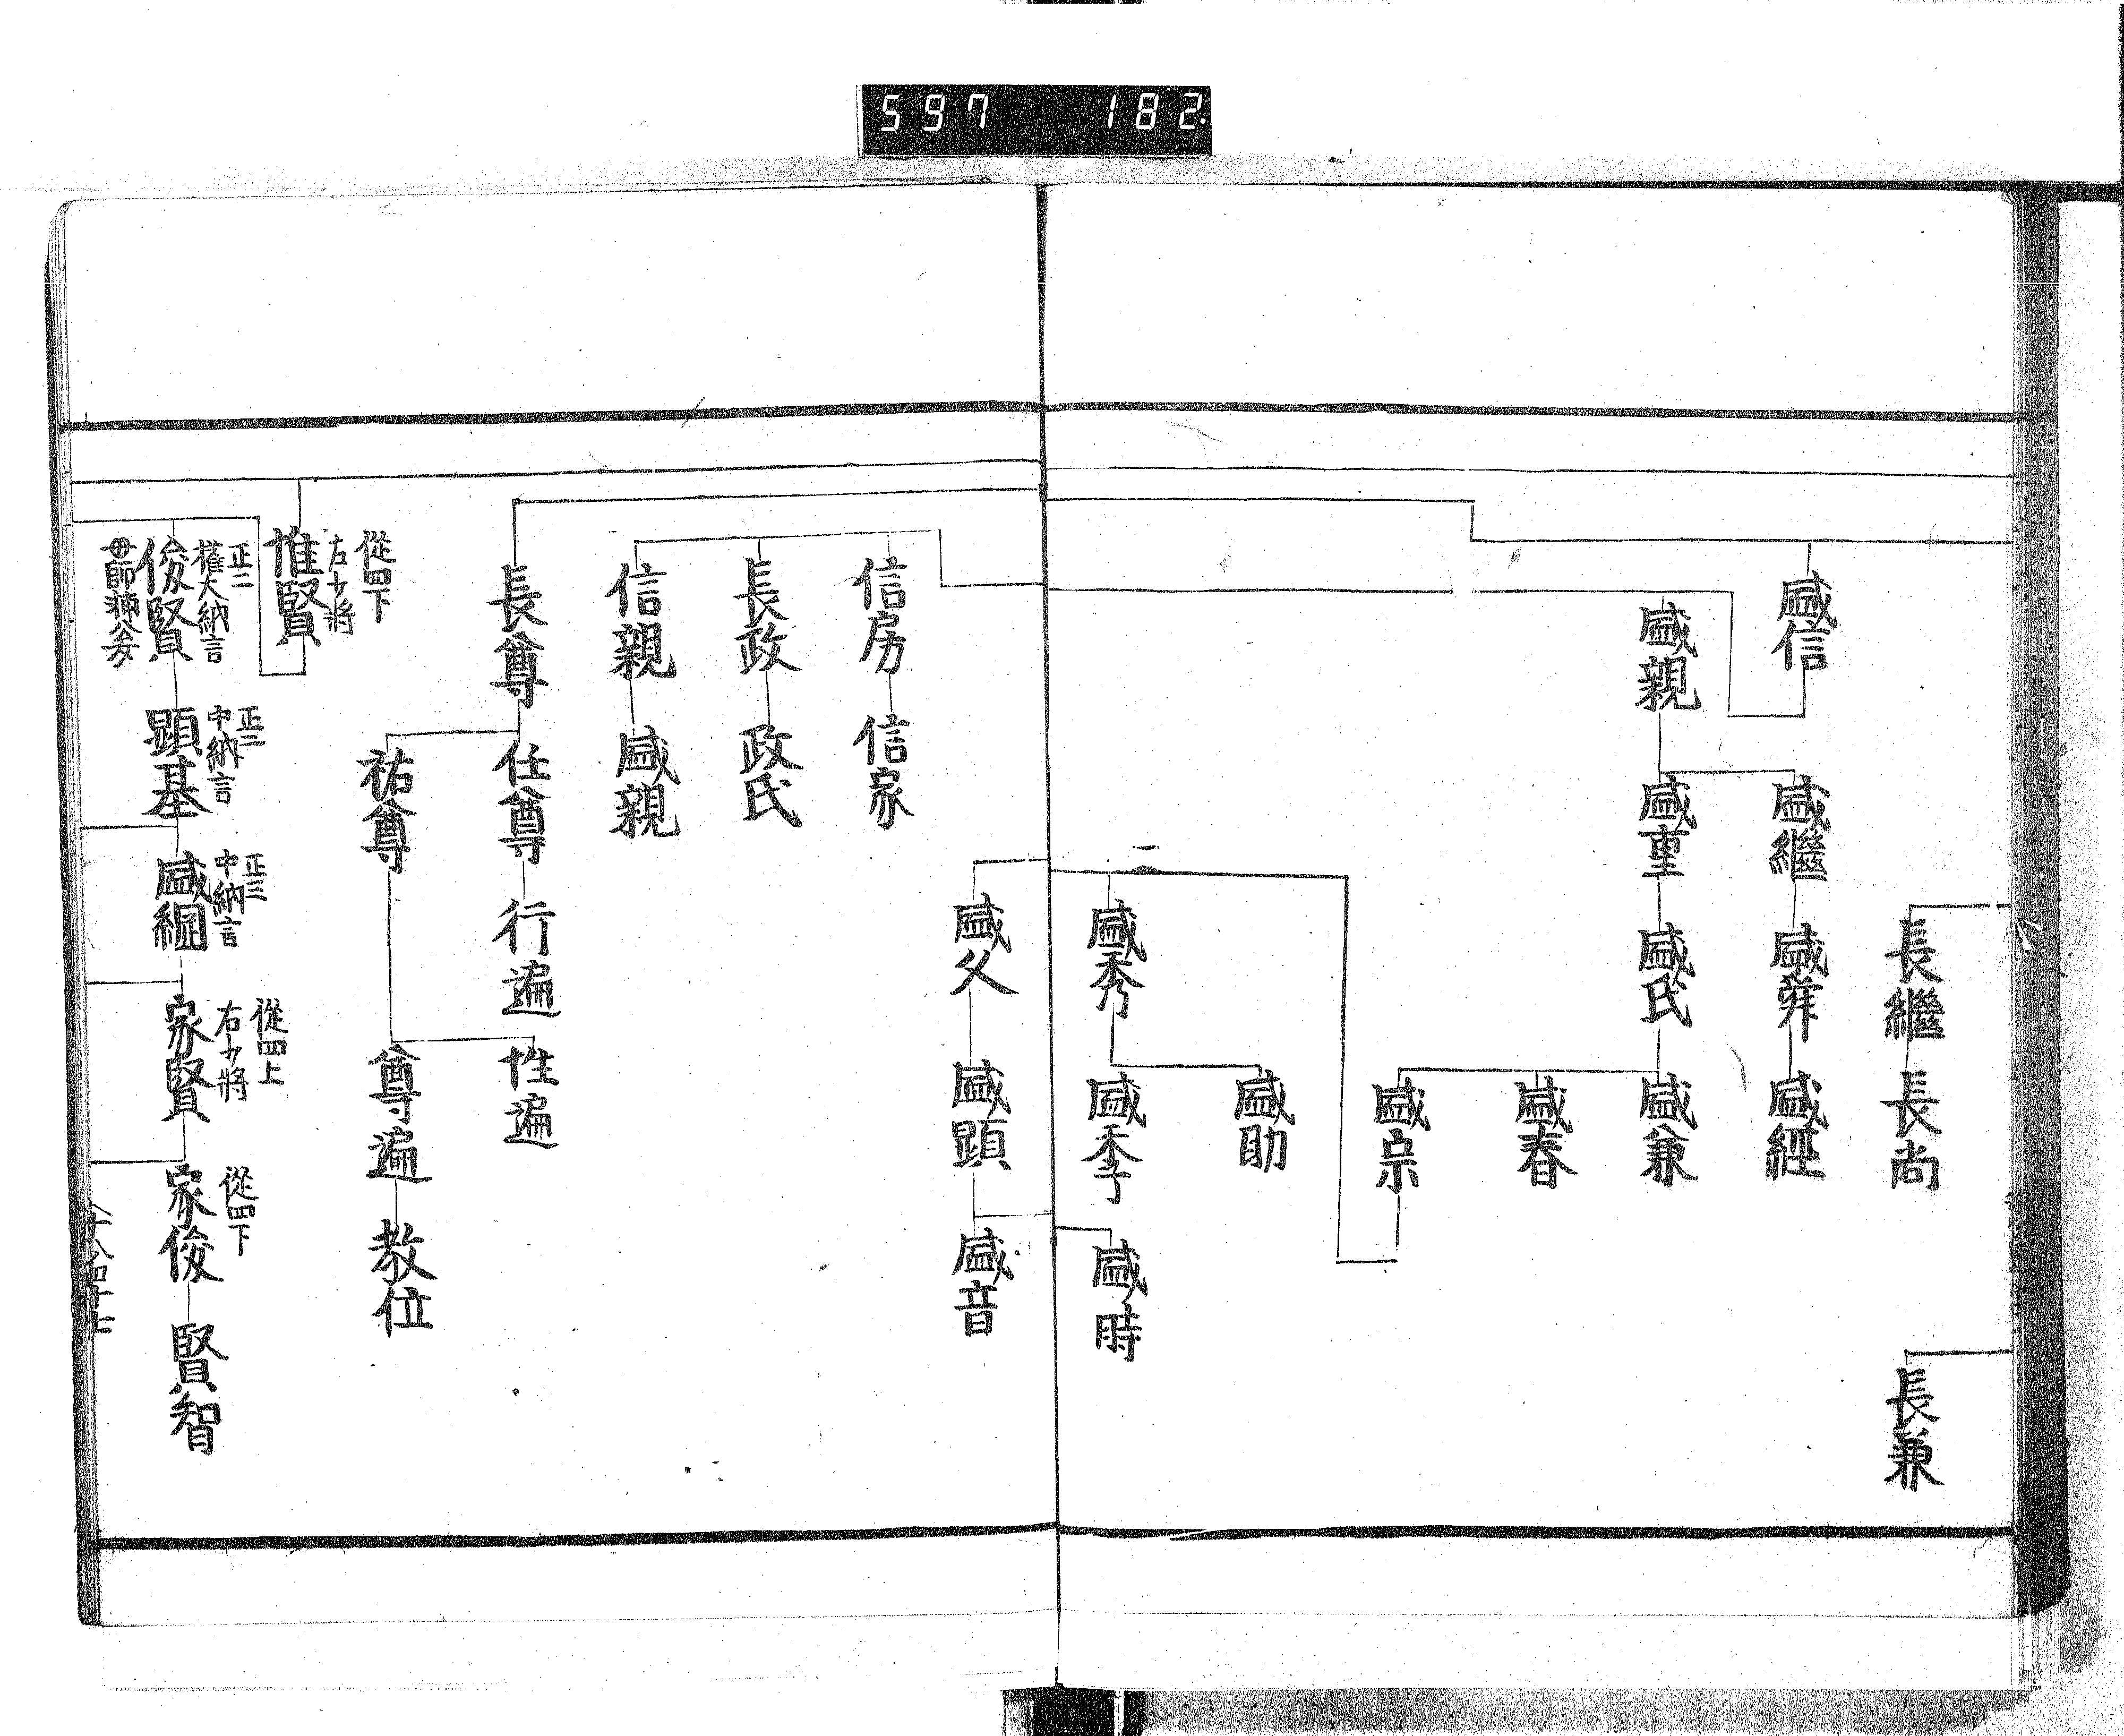 597 182
長繼 長尚
長兼
盛信
盛繼 盛舜 盛經
盛親 盛重 盛氏 盛兼
盛春
盛宗
盛助
盛秀 盛季 盛時
盛父 盛顕 盛音
信房 信家
長政 政氏
信親 盛親
長尊 任尊 行遍 性遍
祐尊 尊遍 教位
從四下
左少將
惟賢
正二
權大納言
俊賢
正三
中納言
顕基
正三
中納言
盛綱
從四上
右少將
家賢
從四下
家俊 賢智